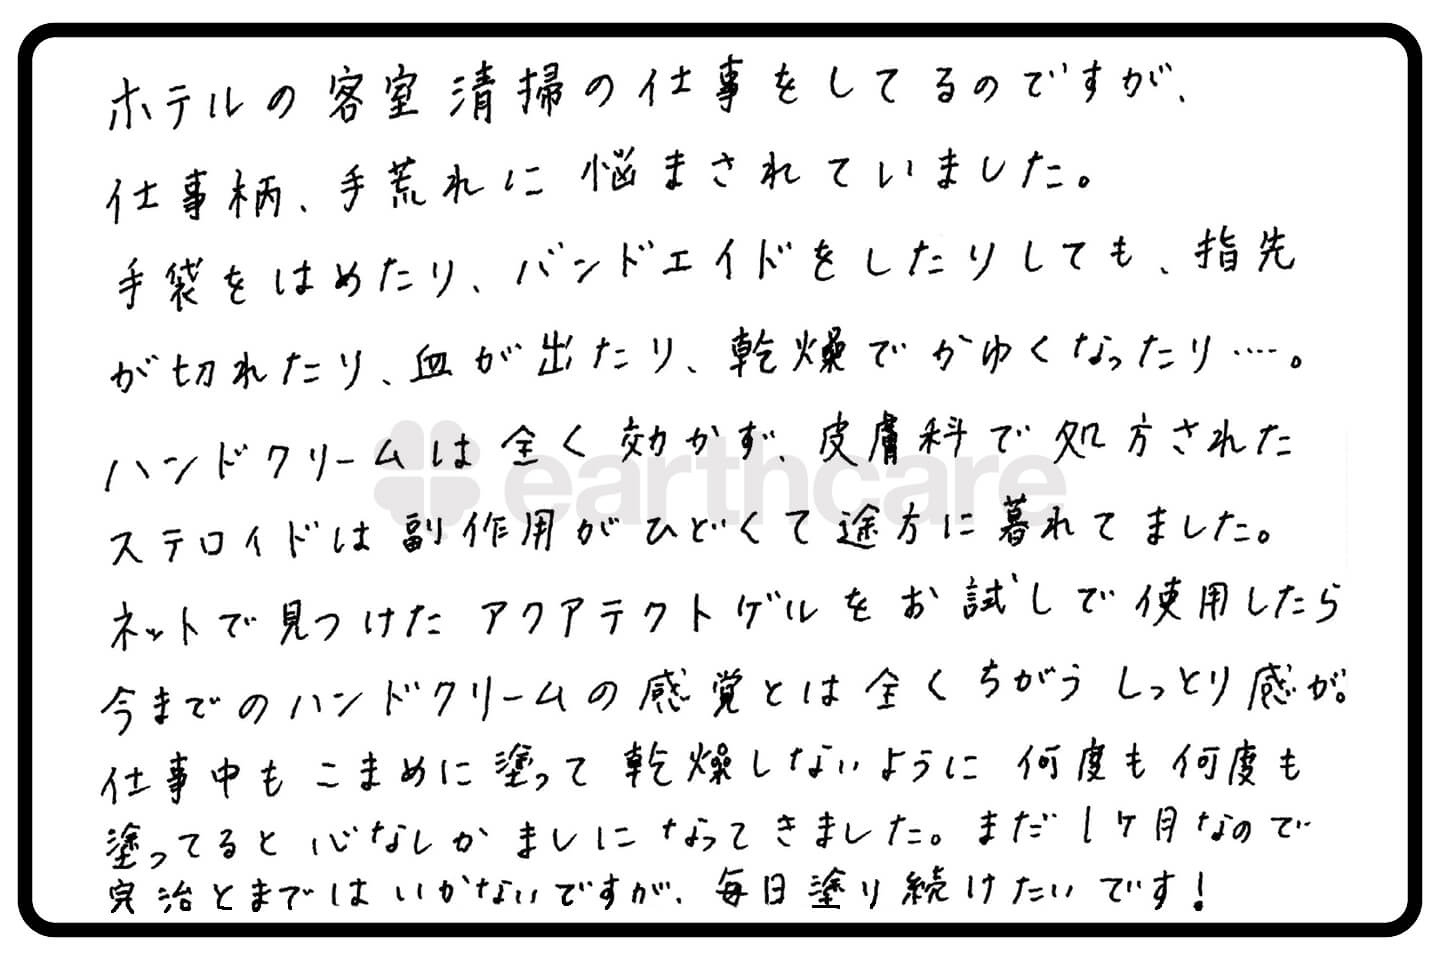 ホテルの客室清掃の仕事をしてるのですが、
仕事柄、手荒れに悩まされていました。
手袋をはめたり、バンドエイドをしたりしても、指先
が切れたり、血が出たり、乾燥でかゆくなったり‥‥。
ハンドクリームは全く効かず、皮膚科で処方された
earthcare
ステロイドは副作用がひどくて途方に暮れてました。
ネットで見つけたアクアテクトゲルをお試しで使用したら
今までのハンドクリームの感覚とは全くちがうしっとり感が。
仕事中もこまめに塗って乾燥しないように何度も何度も
塗ってると心なしかましになってきました。まだ1ヶ月なので
完治とまではいかないですが、毎日塗り続けたいです!